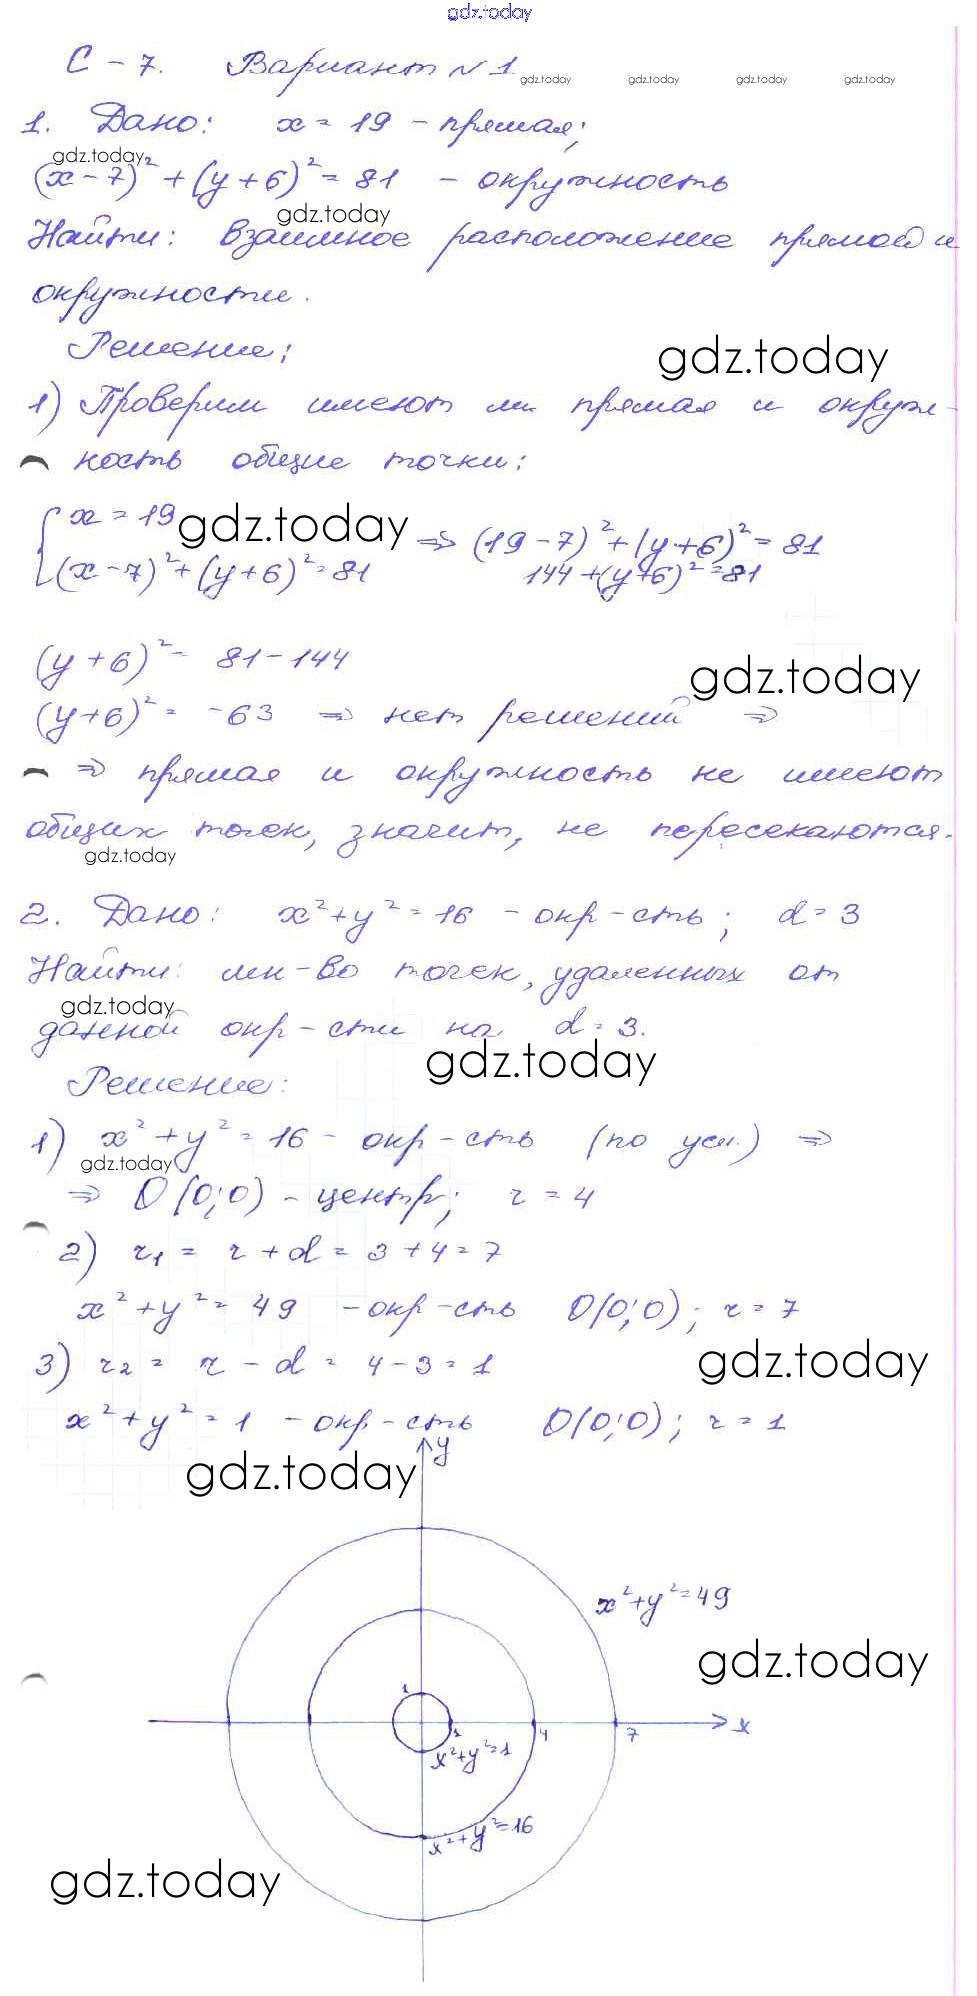 gdz.today
С - 7. Вариант № 1
gdz.today gdz.today gdz.today gdz.today
1. Дано: x = 19 - прямая;
gdz.today
(x - 7)² + (y + 6)² = 81 - окружность
gdz.today
Найти: взаимное расположение прямой и
окружности.
Решение:
gdz.today
1) Проверим имеют ли прямая и окруж-
ность общие точки:
{ x = 19
gdz.today
(x - 7)² + (y + 6)² = 81 ⇒ (19 - 7)² + (y + 6)² = 81
144 + (y + 6)² = 81
(y + 6)² = 81 - 144
gdz.today
(y + 6)² = -63 ⇒ нет решений ⇒
⇒ прямая и окружность не имеют
общих точек, значит, не пересекаются.
gdz.today
2. Дано: x² + y² = 16 - окр-сть; d = 3
Найти: мн-во точек, удаленных от
gdz.today
данной окр-сти на d = 3.
gdz.today
Решение:
1) x² + y² = 16 - окр-сть (по усл.) ⇒
gdz.today
⇒ O(0;0) - центр; r = 4
2) r₁ = r + d = 3 + 4 = 7
x² + y² = 49 - окр-сть O(0;0); r = 7
3) r₂ = r - d = 4 - 3 = 1
gdz.today
x² + y² = 1 - окр-сть O(0;0); r = 1
y
gdz.today
x² + y² = 49
gdz.today
1
1 4 7 x
x² + y² = 1
x² + y² = 16
gdz.today